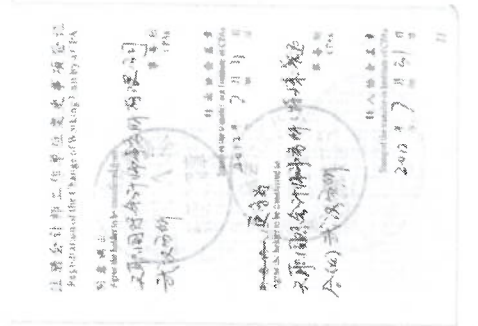 注册会计师工作单位变更事项登记
Registration of the Change of Working Unit by a CPA
同意调出
Agree the holder to be transferred from
天职国际会计师事务所有限公司
武汉分所
事务所
CPAs
转出协会盖章
Stamp of the transfer-out Institute of CPAs
2012年7月31日
同意调入
Agree the holder to be transferred to
天职国际会计师事务所(特殊普通
合伙)武汉分所
事务所
CPAs
转入协会盖章
Stamp of the transfer-in Institute of CPAs
2012年7月31日